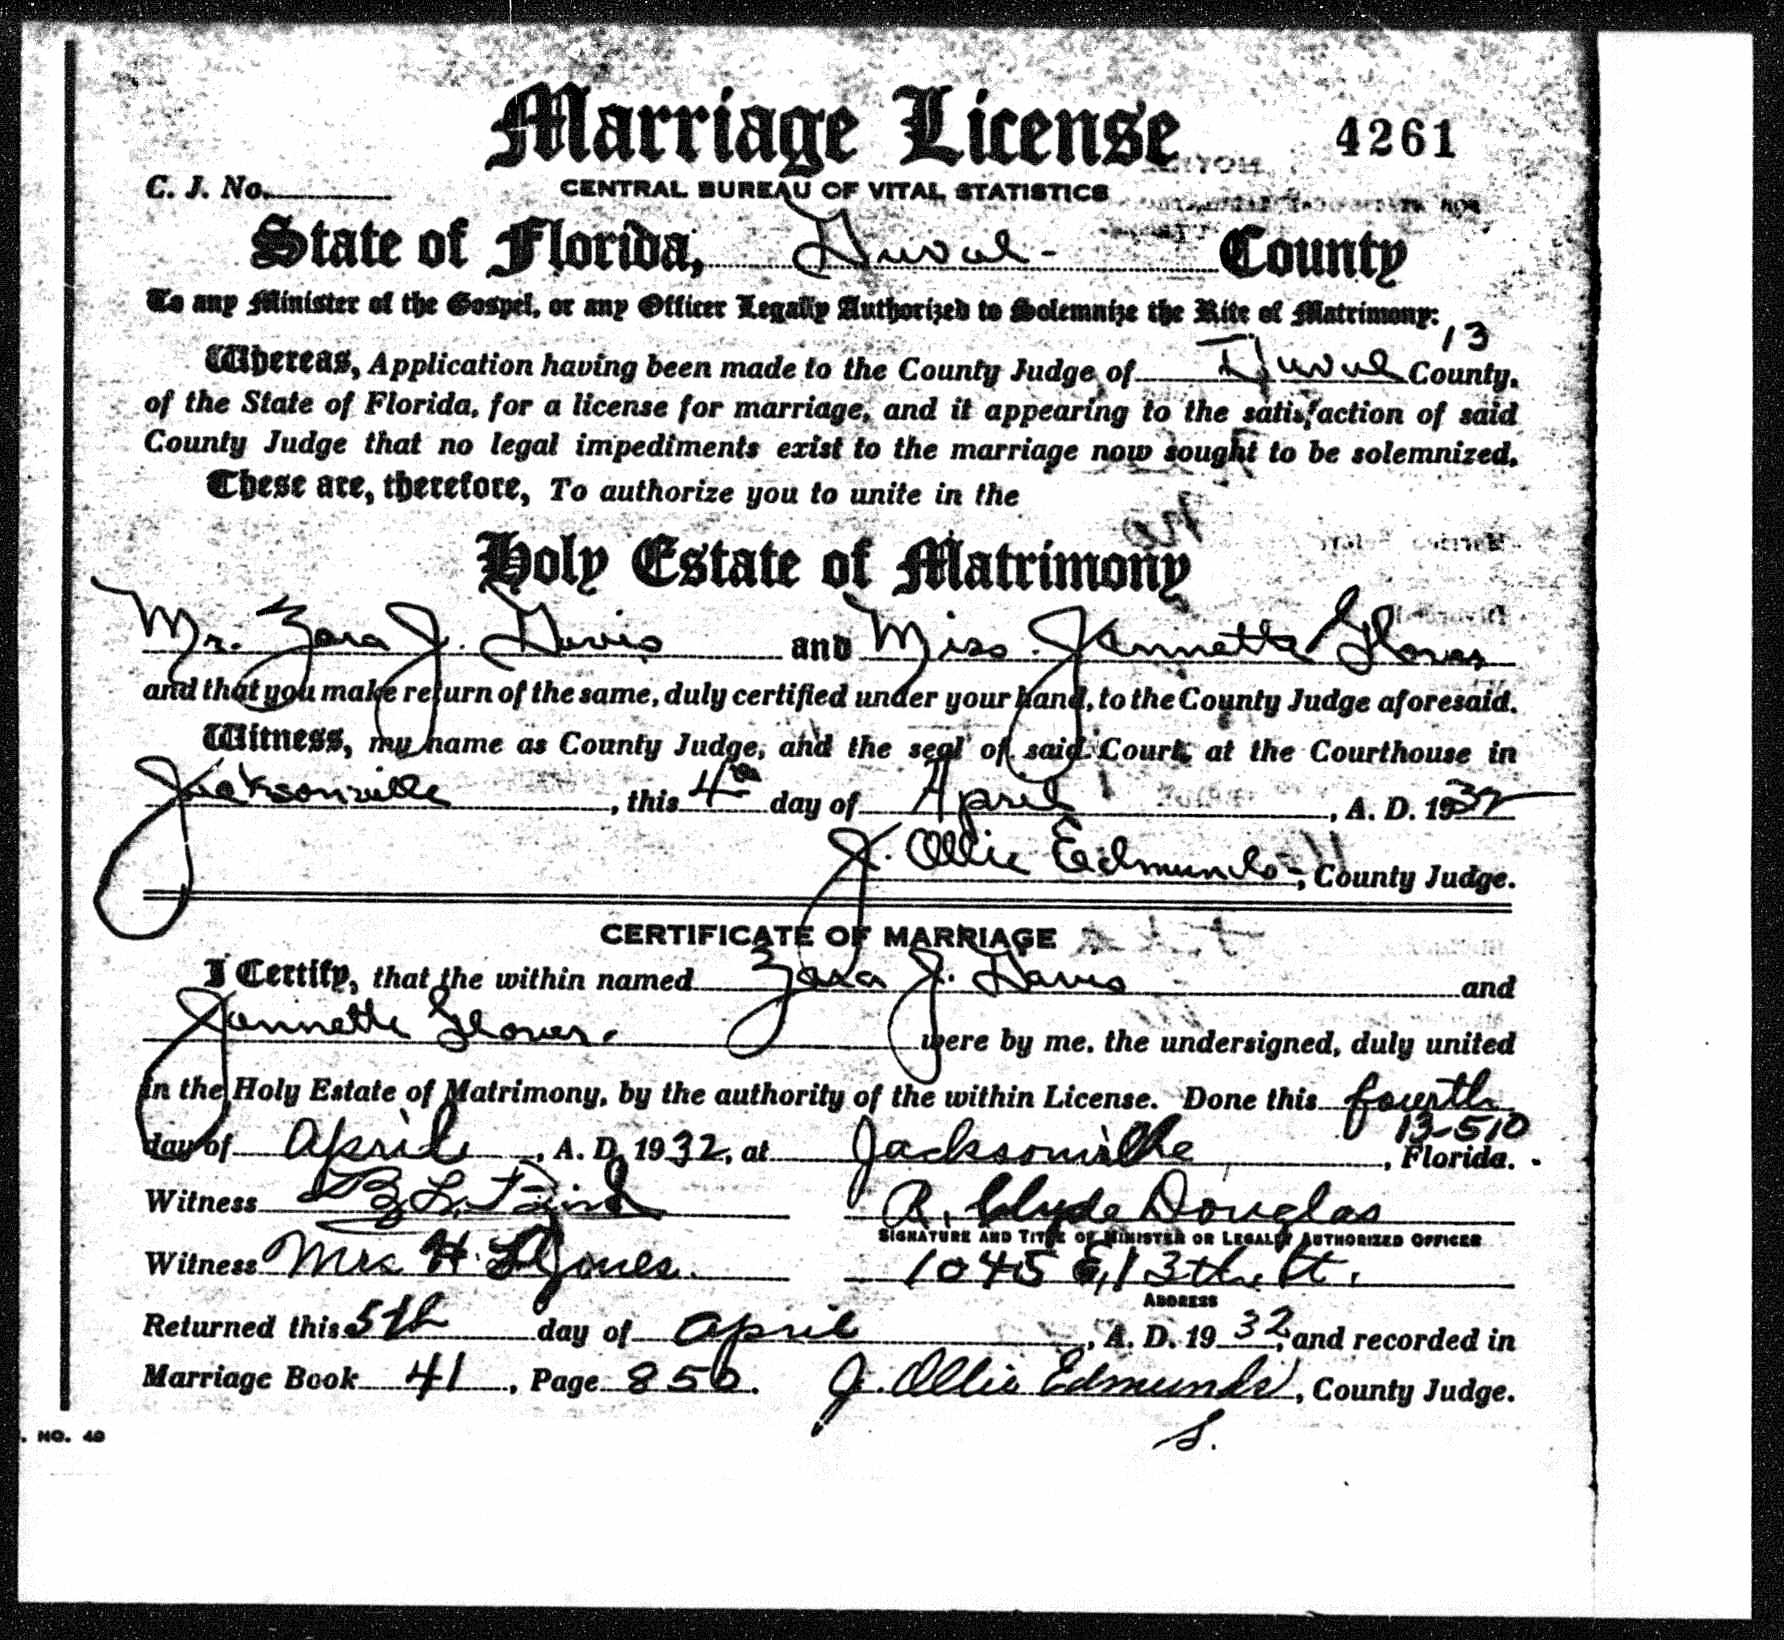 Marriage License 4261
C. J. No.
CENTRAL BUREAU OF VITAL STATISTICS
State of Florida, Duval County
To any Minister of the Gospel, or any Officer Legally Authorized to Solemnize the Rite of Matrimony:
13
Whereas, Application having been made to the County Judge of Duval County,
of the State of Florida, for a license for marriage, and it appearing to the satisfaction of said
County Judge that no legal impediments exist to the marriage now sought to be solemnized,
These are, therefore, To authorize you to unite in the
Holy Estate of Matrimony
Mr. Zara J. Davis and Miss. Jannette Glover
and that you make return of the same, duly certified under your hand, to the County Judge aforesaid.
Witness, my name as County Judge, and the seal of said Court, at the Courthouse in
Jacksonville, this 4th day of April, A. D. 1932
J. Ollie Edmunds, County Judge.
CERTIFICATE OF MARRIAGE
I Certify, that the within named Zara J. Davis and
Jannette Glover. were by me, the undersigned, duly united
in the Holy Estate of Matrimony, by the authority of the within License. Done this fourth
13-510
day of April, A. D. 1932, at Jacksonville, Florida.
Witness R. Clyde Douglas
SIGNATURE AND TITLE OF MINISTER OR LEGALLY AUTHORIZED OFFICER
Witness Mrs H. L. Jones. 1045 E, 13th St.
ADDRESS
Returned this 5th day of April, A. D. 1932, and recorded in
Marriage Book 41, Page 850. J. Ollie Edmunds, County Judge.
S.
. NO. 49